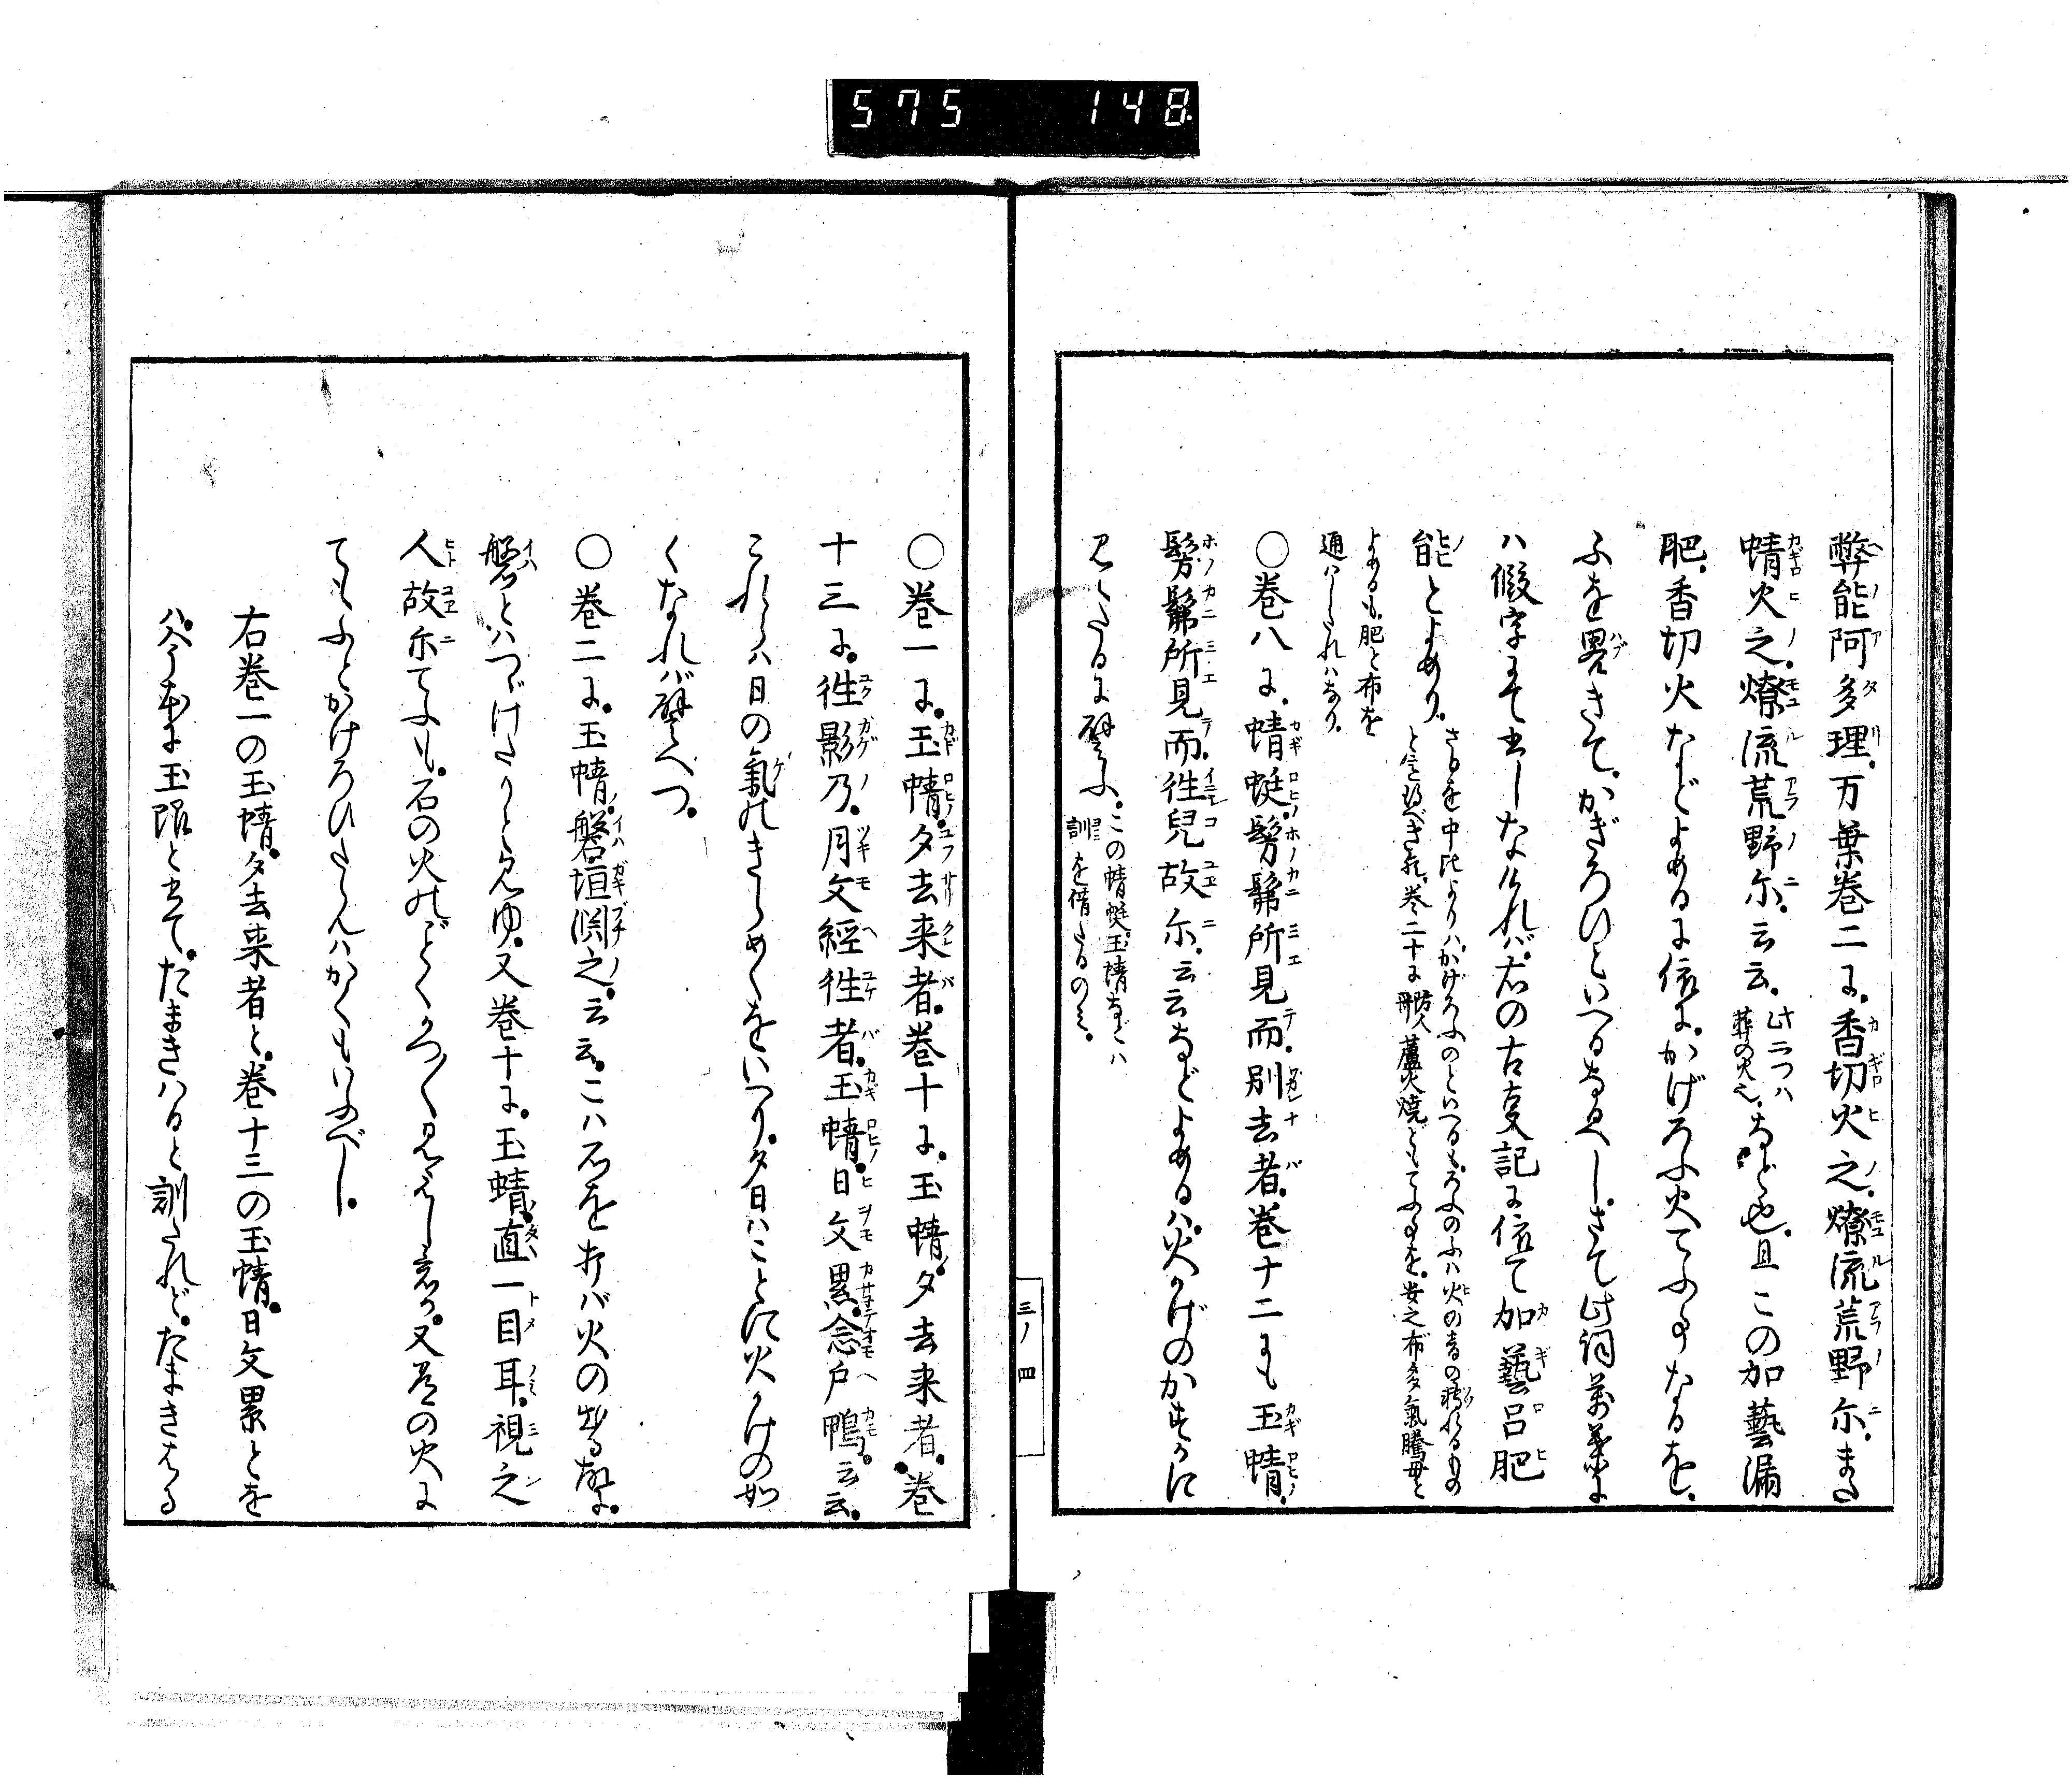 575 148
弊能阿多理。万葉巻二に。香切火之。燎流荒野尓。また
蜻火之。燎流荒野尓。云云。此二つハ葬の火也。など也。且この加藝漏
肥。香切火などよめるに依に。かげろふ火てふ事なるを。
ふを畧きて。かぎろひといへるなるべし。さて此詞万葉に
ハ假字にて書しなければ。右の古叓記に依て加藝呂肥
能とよめり。さるを中比よりハ。かげろふのといへるも。ろふのふハ火の音の轉れるもの
と意得べきか。巻二十に防人蘆火燒ともてふ事を。安之布多氣騰母と
よめるも。肥と布を
通ハしたれハなり。
〇巻八に。蜻蜓。髣髴所見而。別去者。巻十二にも玉蜻。
髣髴所見而。徃兒故尓。云云などよめるハ。火かげのかすかに
見えたるに譬ふ。この蜻蜓玉蜻などハ
訓を借たるのみ。
三ノ四
〇巻一に。玉蜻。夕去来者。巻十に。玉蜻。夕去来者。巻
十三に。徃影乃。月文經徃者。玉蜻。日文累。念戸鴨。云云。
これらハ日の氣のきらめくをいへり。夕日ハことに火かけの如
くなれバ譬へつ。
〇巻二に。玉蜻。磐垣渕之。云云。こハ石を打バ火の出る故に。
磐とハつゞけたりと見ゆ。又巻十に。玉蜻。直一目耳。視之
人故尓てふも。石の火のごとくかつ〱見えし意か。又其の火に
てもふとかけろひたらんハかくもいふべし。
右巻一の玉蜻。夕去来者と。巻十三の玉蜻。日文累とを
ハ。今本に玉限と書て。たまきハると訓たれど。たまきはる